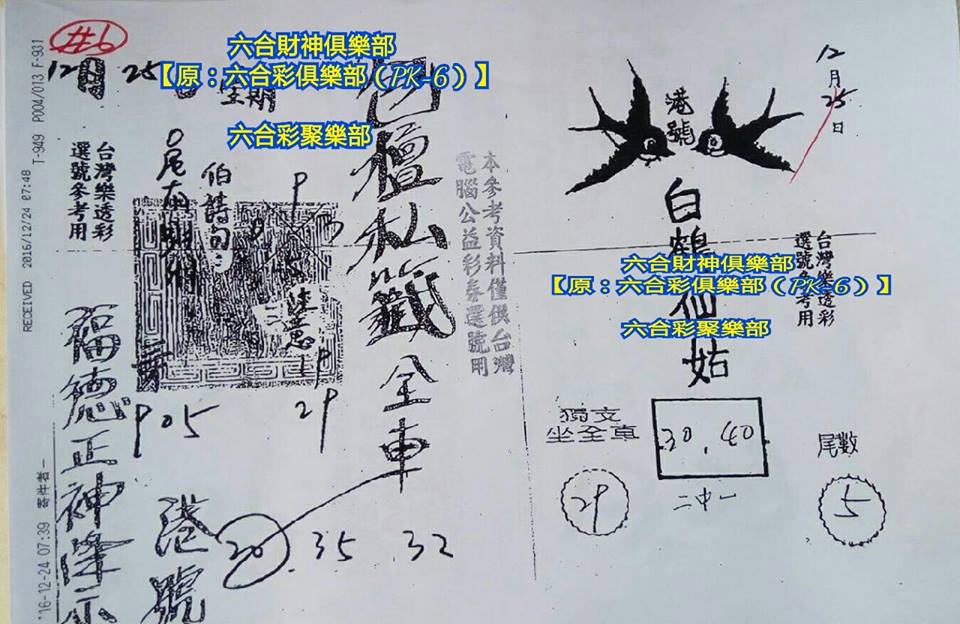 #6
12月 25日 星期
六合財神俱樂部
【原：六合彩俱樂部（PK-6）】
六合彩聚樂部
RECEIVED 2016/12/24 07:48 T-949 P004/013 F-931
'16-12-24 07:39 寄件者-
台灣樂透彩
選號參考用
福德正神降示
伯詩句
05
29
港號
20 . 35 . 32
壇私籤全車
本參考資料僅供台灣
電腦公益彩券選號用
12月25日
港號
白鶴仙姑
台灣樂透彩
選號參考用
六合財神俱樂部
【原：六合彩俱樂部（PK-6）】
六合彩聚樂部
獨支
坐全車
29
20 . 40
二中一
尾數
5